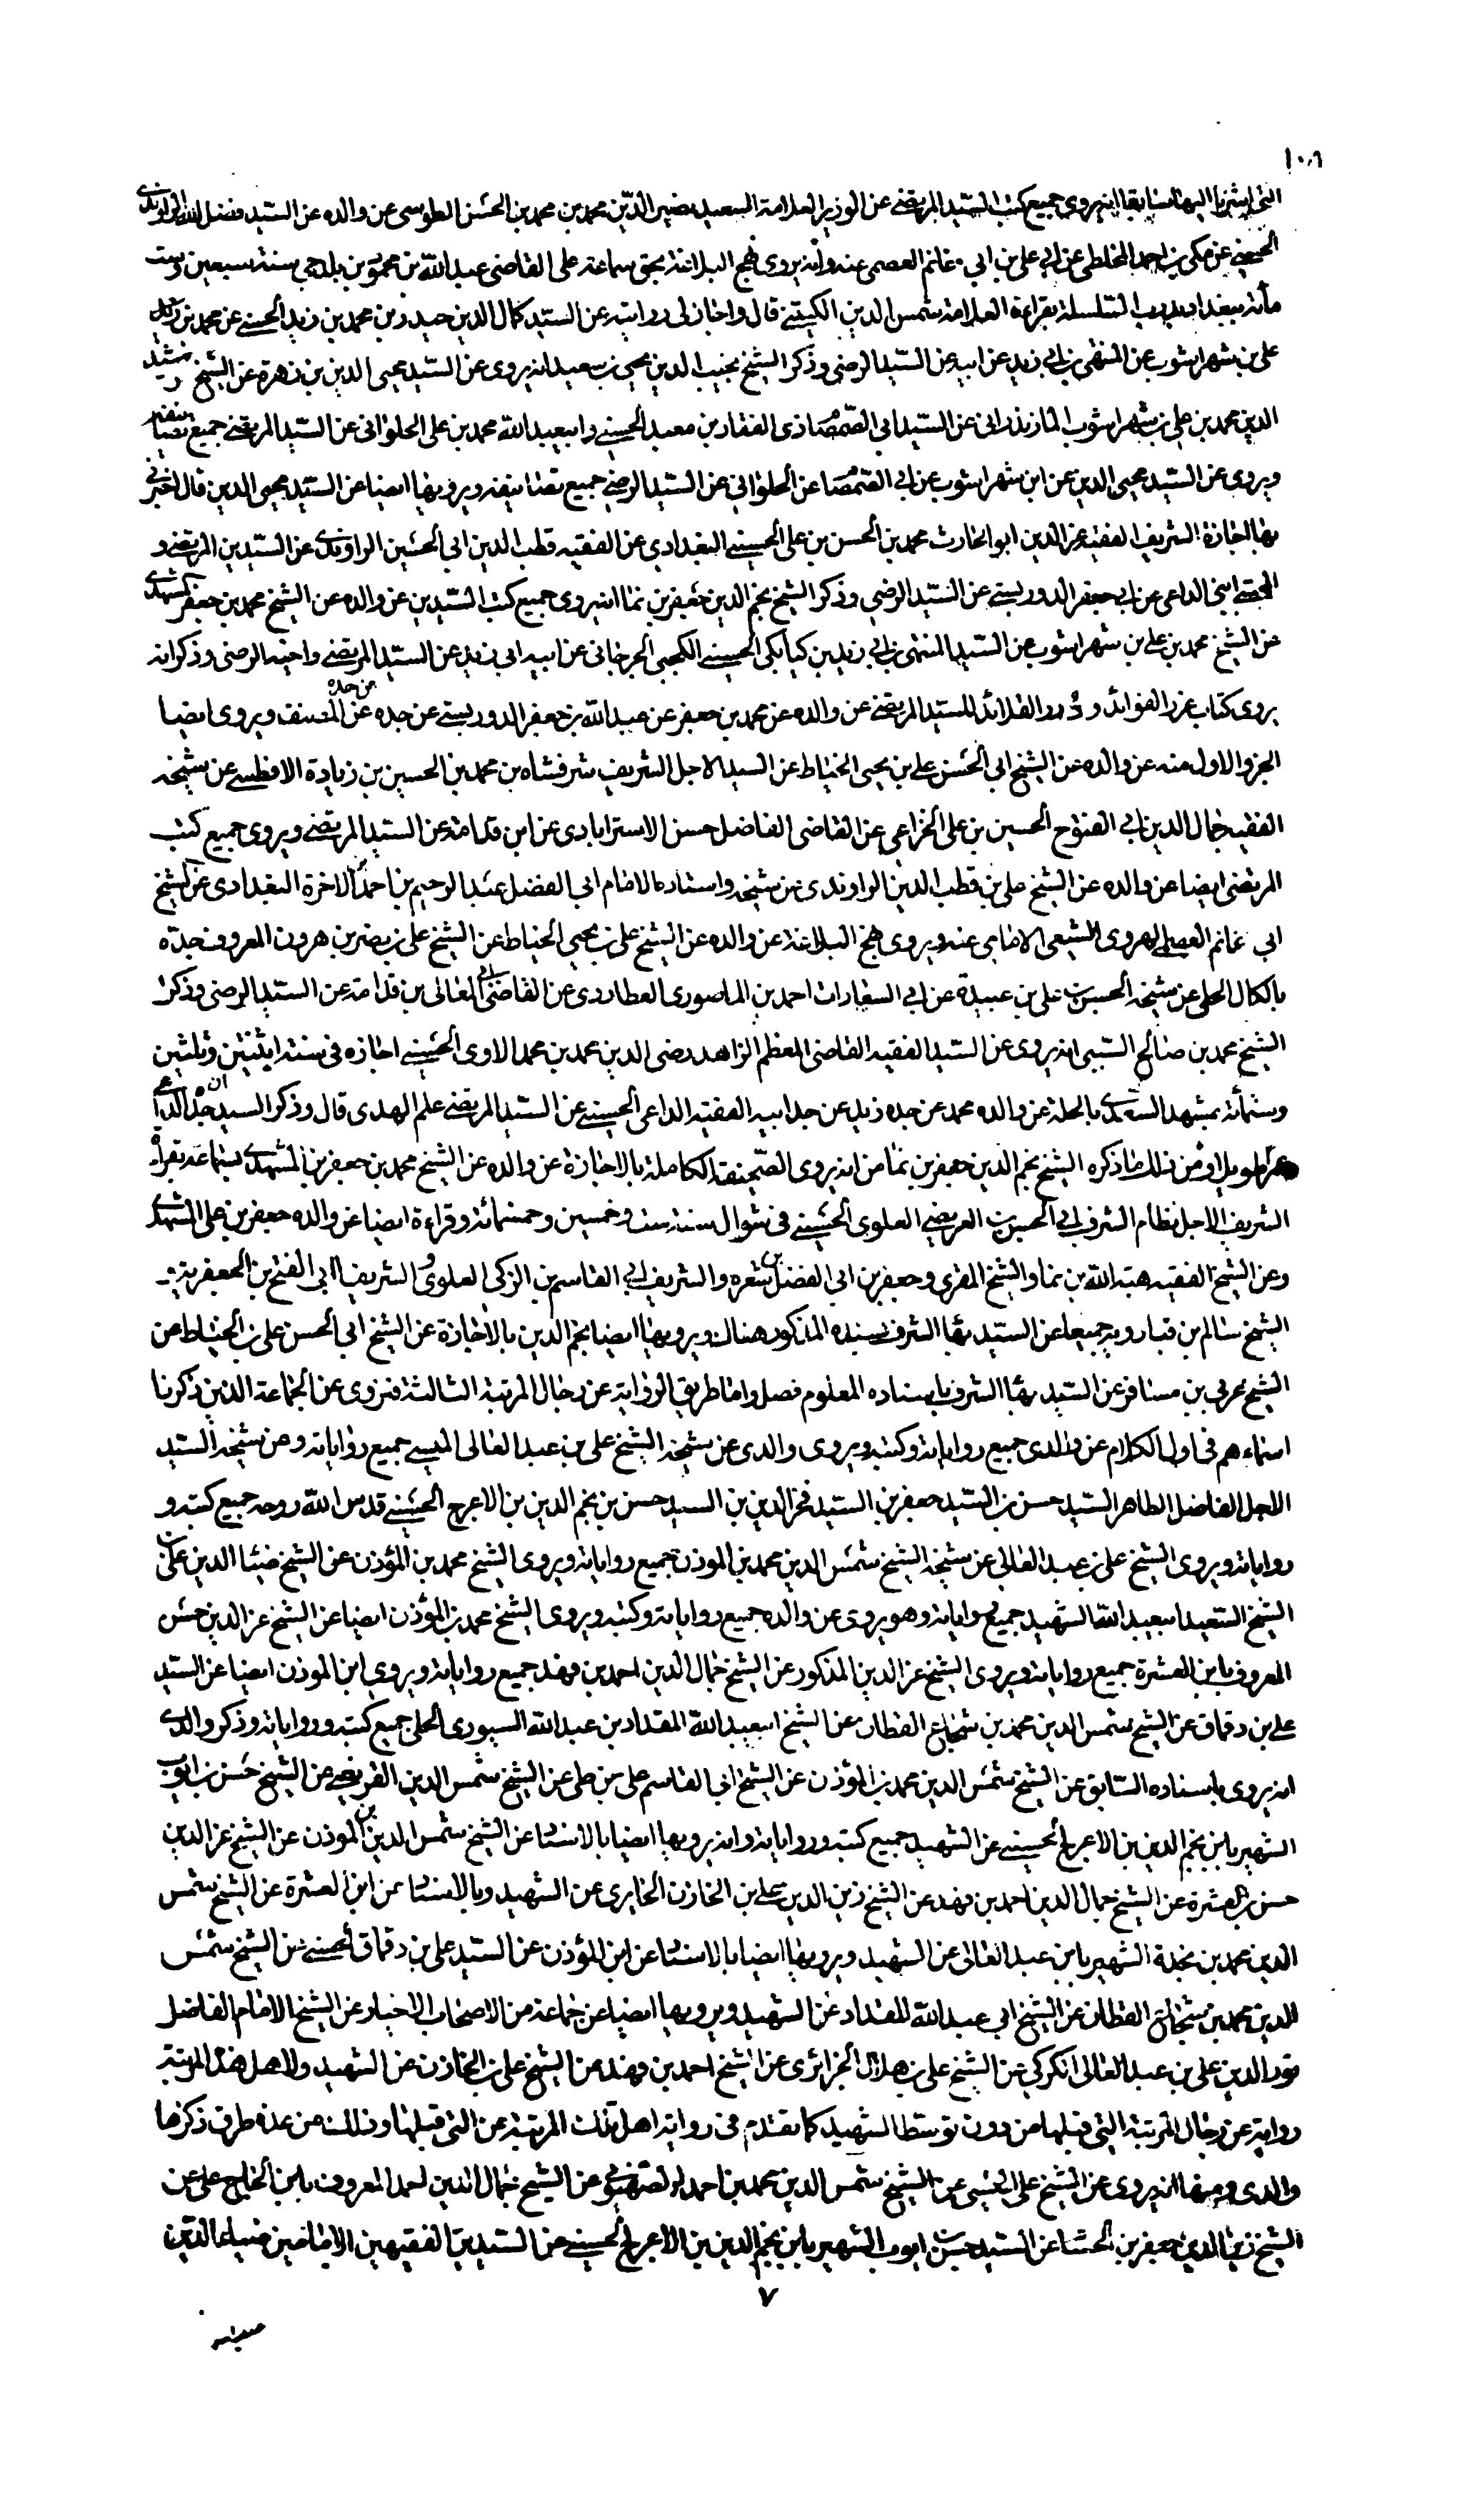 ١٠٩
التي اشرنا اليها سابقا انه يروى جميع كتب السيد المرتضى عن الوزير العلامة السعيد نصير الدين محمد بن محمد بن الحسن الطوسى عن والده عن السيد فضل الله الراوندى
الحسنى عن مكى بن احمد المخلطى عن ابى على بن ابى غانم العصمى عنه وانه يروى نهج البلاغة بحق سماعه على القاضى عبد الله بن محمود بن بلدجى سنة سبعين وست
مأة ببغداد بقراءة العلامة شمس الدين الكيشى قال واجاز لى روايته عن السيد كمال الدين حيدر بن محمد بن زيد الحسنى عن محمد بن
على بن شهراشوب عن المنتهى بن ابى زيد عن ابيه عن السيد الرضى وذكر الشيخ نجيب الدين يحيى بن سعيد انه يروى عن السيد محيى الدين بن زهرة عن الشيخ رشيد
الدين محمد بن على بن شهراشوب المازندرانى عن السيد ابى الصمصام ذى الفقار بن معبد الحسنى وابى عبد الله محمد بن على الحلوانى عن السيد المرتضى جميع تصانيفه
ويروى عن السيد محيى الدين عن ابن شهراشوب عن ابى الصمصام عن الحلوانى عن السيد الرضى جميع تصانيفه ويرويها ايضا عن السيد محيى الدين قال اخبرنى
بها اجازة الشريف الفقيه عز الدين ابو الحارث محمد بن الحسن بن على الحسينى البغدادى عن الفقيه قطب الدين ابى الحسين الراوندى عن السيدين المرتضى و
المجتبى ابنى الداعى عن ابى جعفر الدوريستى عن السيد الرضى وذكر الشيخ نجم الدين جعفر بن نما انه يروى جميع كتب السيدين عن والده عن الشيخ محمد بن جعفر المشهدى
عن الشيخ محمد بن على بن شهراشوب عن السيد المنتهى بن ابى زيد بن كيابكى الحسينى الكجى الجرجانى عن ابيه ابى زيد عن السيد المرتضى واخيه الرضى وذكر انه
يروى كتاب غرر الفوائد ودرر القلائد للسيد المرتضى عن والده عن محمد بن جعفر عن عبد الله بن جعفر الدوريستى عن جده عن جده عن المصنف ويروى ايضا
الجزء الاول منه عن والده عن الشيخ ابى الحسن على بن يحيى الخياط عن السيد الاجل الشريف شرفشاه بن محمد بن الحسين بن زيادة الافطسى عن شيخه
الفقيه جمال الدين ابى الفتوح الحسين بن على الخزاعى عن القاضى الفاضل حسن الاسترابادى عن ابن قدامة عن السيد المرتضى ويروى جميع كتب
المرتضى ايضا عن والده عن الشيخ على بن قطب الدين الراوندى عن شيخه واستاده الامام ابى الفضل عبد الرحيم بن احمد الاخوة البغدادى عن الشيخ
ابى غانم العصمى الهروى الشيعى الامامى عنه ويروى نهج البلاغة عن والده عن الشيخ على بن يحيى الخياط عن الشيخ على بن نصر بن هرون المعروف جده
بالكال الحلى عن شيخه الحسين بن على بن عبيدة عن ابى السعادات احمد بن الماصورى العطاردى عن القاضى ابى المعالى بن قدامة عن السيد الرضى وذكر
الشيخ محمد بن صالح السيبى انه يروى عن السيد الفقيه القاضى المعظم الزاهد رضى الدين محمد بن محمد الاوى الحسينى اجازه فى سنة اثنتين وثلثين
وستمأة بمشهد السعدى بالحلة عن والده محمد عن جده زيد عن جد ابيه الفقيه الداعى الحسينى عن السيد المرتضى علم الهدى قال وذكر السيد ان جد الداعى
عمر طويلا ومن ذلك ما ذكره الشيخ نجم الدين جعفر بن نما من انه يروى الصحيفة الكاملة بالاجازة عن والده عن الشيخ محمد بن جعفر بن المشهدى بسماعه بقرائة
الشريف الاجل نظام الشرف ابى الحسن بن العريضى العلوى الحسينى فى شوال سنة ست وخمسين وخمسمائة وقراءة ايضا عن والده جعفر بن على المشهدى
وعن الشيخ الفقيه هبة الله بن نما والشيخ المقرى وجعفر بن ابى الفضل بن شعره والشريف ابى القاسم بن الزكى العلوى و الشريف ابى الفتح بن الجعفرية و
الشيخ سالم بن قبارويه جميعا عن السيد بهاء الشرف بسنده المذكور هناك ويرويها ايضا نجم الدين بالاجازة عن الشيخ ابى الحسن على بن الخياط عن
الشيخ عربى بن مسافر عن السيد بهاء الشرف باسناده المعلوم فصل واما طريق الرواية عن رجال المرتبة الثالثة فنروى عن الجماعة الذين ذكرنا
اسماءهم فى اول الكلام عن والدى جميع رواياته وكتبه ويروى والدى عن شيخه الشيخ على بن عبد العالى الميسى جميع رواياته وعن شيخه السيد
الاجل الفاضل الطاهر السيد حسن بن السيد جعفر بن السيد فخر الدين بن السيد حسن بن نجم الدين بن الاعرج الحسينى قدس الله روحه جميع كتبه و
رواياته ويروى الشيخ على بن عبد العالى عن شيخه الشيخ شمس الدين محمد بن الموذن جميع رواياته ويروى الشيخ محمد بن المؤذن عن الشيخ ضياء الدين على بن
الشيخ السعيد ابى عبد الله الشهيد جميع رواياته وهو يروى عن والده جميع رواياته وكتبه ويروى الشيخ محمد بن المؤذن ايضا عن الشيخ عز الدين حسن
المعروف بابن العشرة جميع رواياته ويروى الشيخ عز الدين المذكور عن الشيخ جمال الدين احمد بن فهد جميع رواياته ويروى ابن الموذن ايضا عن السيد
على بن دقماق عن الشيخ شمس الدين محمد بن شجاع القطان عن الشيخ ابى عبد الله المقداد بن عبد الله السيورى الحلى جميع كتبه ورواياته وذكر والدى
انه يروى باسناده السابق عن الشيخ شمس الدين محمد بن المؤذن عن الشيخ ابى القاسم على بن طى عن الشيخ شمس الدين العريضى عن الشيخ حسن بن ايوب
الشهير بابن نجم الدين بن الاعرج الحسينى عن الشهيد جميع كتبه ورواياته وانه يرويها ايضا بالاسناد عن الشيخ شمس الدين بن الموذن عن الشيخ عز الدين
حسن بن العشرة عن الشيخ جمال الدين احمد بن فهد عن الشيخ زين الدين على بن الخازن الحايرى عن الشهيد وبالاسناد عن ابن العشرة عن الشيخ شمس
الدين محمد بن نجدة الشهير بابن عبد العالى عن الشهيد ويرويها ايضا بالاسناد عن ابن المؤذن عن السيد على بن دقماق الحسنى عن الشيخ شمس
الدين محمد بن شجاع القطان عن الشيخ ابى عبد الله المقداد عن الشهيد ويرويها ايضا عن جماعة من الاصحاب الاخيار عن الشيخ الامام الفاضل
نور الدين على بن عبد العالى الكركى عن الشيخ على بن هلال الجزائرى عن الشيخ احمد بن فهد عن الشيخ على بن الخازن عن الشهيد ولاهل هذا المرتبة
رواية عن رجال المرتبة التى قبلها من دون توسط الشهيد كما تقدم فى رواية اهل تلك المرتبة عن التى قبلها وذلك من عدة طرق ذكرها
والدى ومنها انه يروى عن الشيخ على الميسى عن الشيخ شمس الدين محمد بن احمد الصهيونى عن الشيخ جمال الدين احمد المعروف بابن الحاج على عن
الشيخ زين الدين جعفر بن الحسام عن السيد حسن بن ايوب الشهير بابن نجم الدين بن الاعرج الحسينى عن السيدين الفقيهين الامامين ضياء الدين
٧